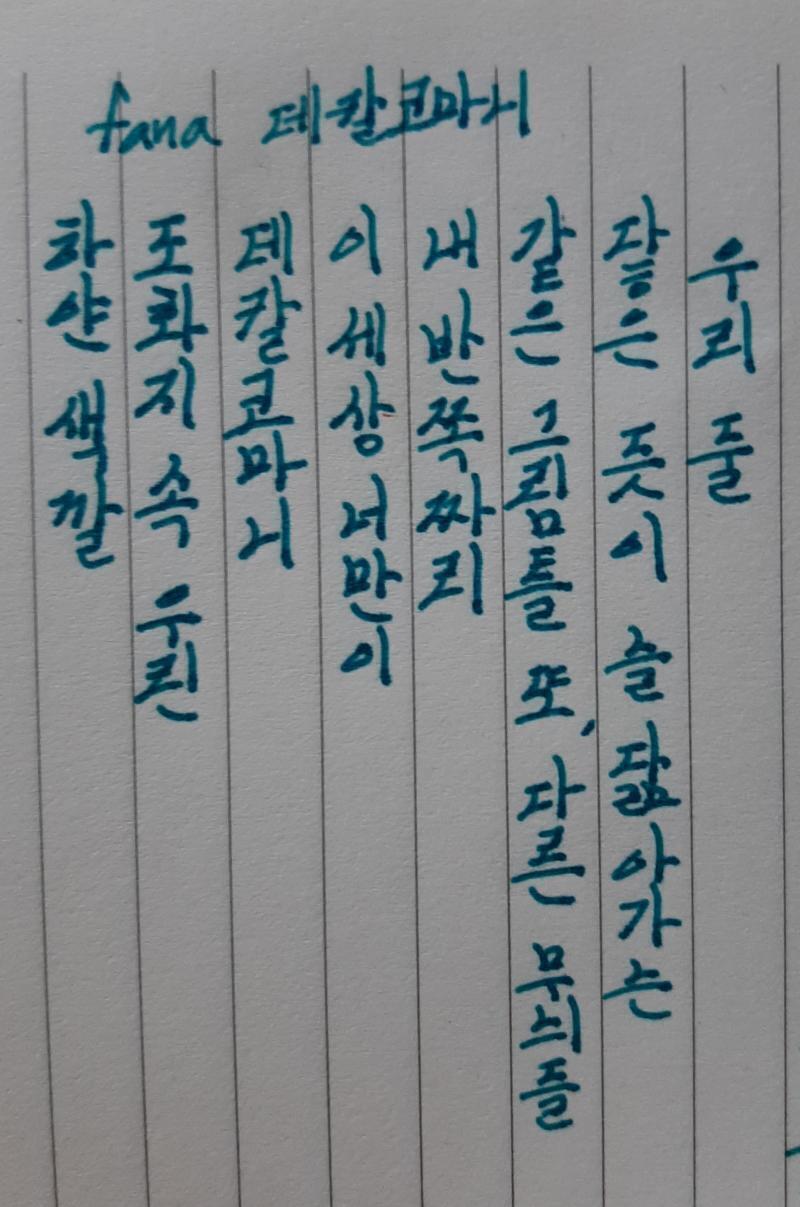 fana 데칼코마니
우리 둘
닿은 듯이 슬 닮아가는
같은 그림틀 또, 다른 무늬들
내 반쪽짜리
이 세상 너만이
데칼코마니
도화지 속 우린
하얀 색깔